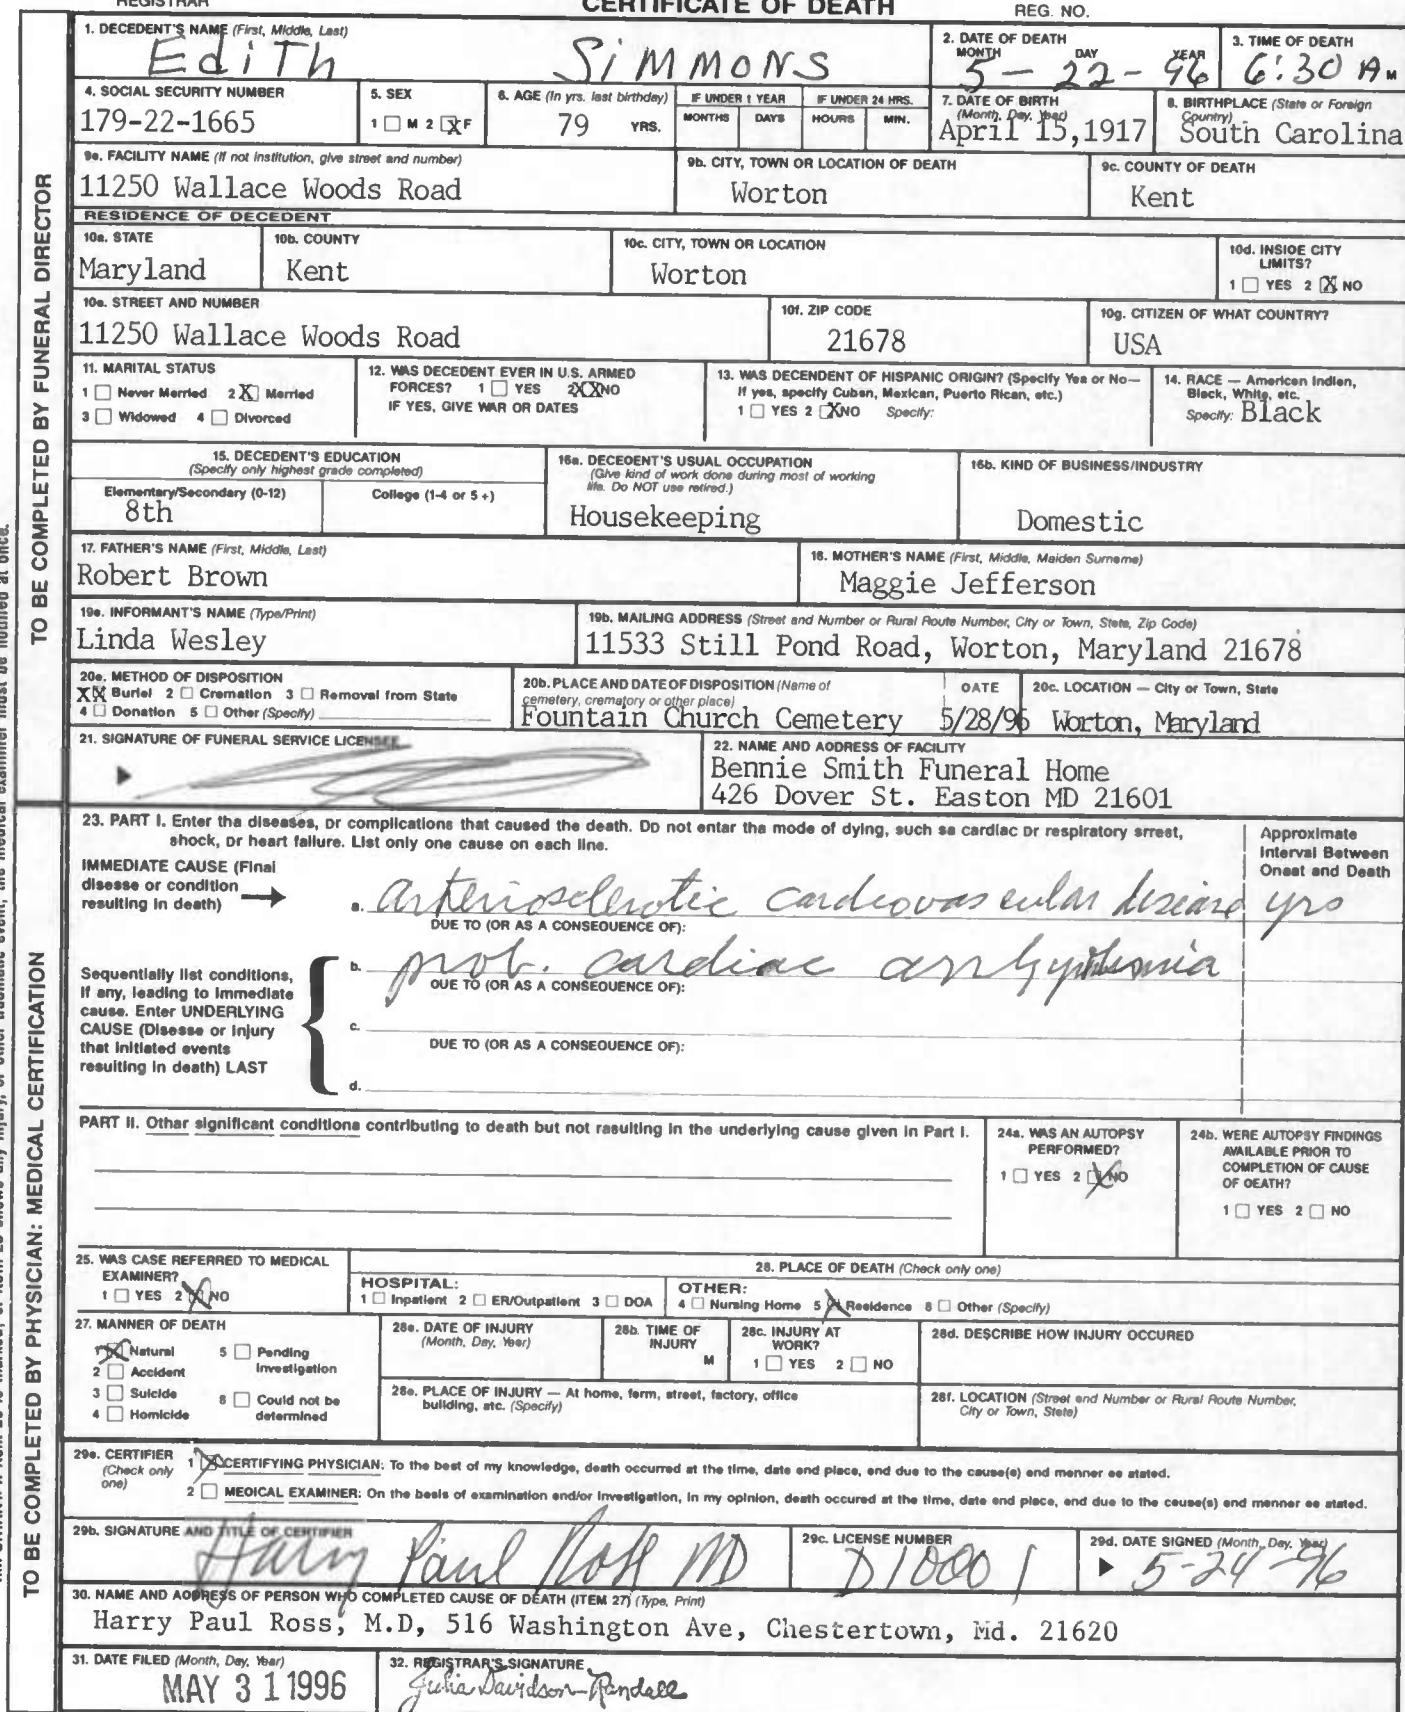 REGISTRAR
CERTIFICATE OF DEATH
REG. NO.
1. DECEDENT'S NAME (First, Middle, Last)
Edith Simmons
2. DATE OF DEATH
MONTH DAY YEAR
5-22-96
3. TIME OF DEATH
6:30 A M
4. SOCIAL SECURITY NUMBER
179-22-1665
5. SEX
1 ☐ M 2 ☒ F
6. AGE (In yrs. last birthday)
79 YRS.
IF UNDER 1 YEAR
MONTHS DAYS
IF UNDER 24 HRS.
HOURS MIN.
7. DATE OF BIRTH
(Month, Day, Year)
April 15,1917
8. BIRTHPLACE (State or Foreign
Country)
South Carolina
9a. FACILITY NAME (If not institution, give street and number)
11250 Wallace Woods Road
9b. CITY, TOWN OR LOCATION OF DEATH
Worton
9c. COUNTY OF DEATH
Kent
RESIDENCE OF DECEDENT
10a. STATE
Maryland
10b. COUNTY
Kent
10c. CITY, TOWN OR LOCATION
Worton
10d. INSIDE CITY
LIMITS?
1 ☐ YES 2 ☒ NO
10e. STREET AND NUMBER
11250 Wallace Woods Road
10f. ZIP CODE
21678
10g. CITIZEN OF WHAT COUNTRY?
USA
11. MARITAL STATUS
1 ☐ Never Married 2 ☒ Married
3 ☐ Widowed 4 ☐ Divorced
12. WAS DECEDENT EVER IN U.S. ARMED
FORCES? 1 ☐ YES 2XXNO
IF YES, GIVE WAR OR DATES
13. WAS DECENDENT OF HISPANIC ORIGIN? (Specify Yes or No—
If yes, specify Cuban, Mexican, Puerto Rican, etc.)
1 ☐ YES 2 ☒NO Specify:
14. RACE — American Indian,
Black, White, etc.
Specify: Black
15. DECEDENT'S EDUCATION
(Specify only highest grade completed)
Elementary/Secondary (0-12)
8th
College (1-4 or 5+)
16a. DECEDENT'S USUAL OCCUPATION
(Give kind of work done during most of working
life. Do NOT use retired.)
Housekeeping
16b. KIND OF BUSINESS/INDUSTRY
Domestic
17. FATHER'S NAME (First, Middle, Last)
Robert Brown
18. MOTHER'S NAME (First, Middle, Maiden Surname)
Maggie Jefferson
19a. INFORMANT'S NAME (Type/Print)
Linda Wesley
19b. MAILING ADDRESS (Street and Number or Rural Route Number, City or Town, State, Zip Code)
11533 Still Pond Road, Worton, Maryland 21678
20a. METHOD OF DISPOSITION
XX Burial 2 ☐ Cremation 3 ☐ Removal from State
4 ☐ Donation 5 ☐ Other (Specify)
20b. PLACE AND DATE OF DISPOSITION (Name of
cemetery, crematory or other place)
Fountain Church Cemetery
DATE
5/28/96
20c. LOCATION — City or Town, State
Worton, Maryland
21. SIGNATURE OF FUNERAL SERVICE LICENSEE
22. NAME AND ADDRESS OF FACILITY
Bennie Smith Funeral Home
426 Dover St. Easton MD 21601
23. PART I. Enter the diseases, or complications that caused the death. Do not enter the mode of dying, such as cardiac or respiratory arrest,
shock, or heart failure. List only one cause on each line.
Approximate
Interval Between
Onset and Death
IMMEDIATE CAUSE (Final
disease or condition
resulting in death)
a. arteriosclerotic cardiovascular disease yrs
DUE TO (OR AS A CONSEQUENCE OF):
Sequentially list conditions,
if any, leading to immediate
cause. Enter UNDERLYING
CAUSE (Disease or injury
that initiated events
resulting in death) LAST
b. prob. cardiac arrhythmia
DUE TO (OR AS A CONSEQUENCE OF):
c.
DUE TO (OR AS A CONSEQUENCE OF):
d.
PART II. Other significant conditions contributing to death but not resulting in the underlying cause given in Part I.
24a. WAS AN AUTOPSY
PERFORMED?
1 ☐ YES 2 ☒ NO
24b. WERE AUTOPSY FINDINGS
AVAILABLE PRIOR TO
COMPLETION OF CAUSE
OF DEATH?
1 ☐ YES 2 ☐ NO
25. WAS CASE REFERRED TO MEDICAL
EXAMINER?
1 ☐ YES 2 ☒ NO
26. PLACE OF DEATH (Check only one)
HOSPITAL:
1 ☐ Inpatient 2 ☐ ER/Outpatient 3 ☐ DOA
OTHER:
4 ☐ Nursing Home 5 ☒ Residence 6 ☐ Other (Specify)
27. MANNER OF DEATH
1 ☒ Natural 5 ☐ Pending
2 ☐ Accident Investigation
3 ☐ Suicide 6 ☐ Could not be
4 ☐ Homicide determined
28a. DATE OF INJURY
(Month, Day, Year)
28b. TIME OF
INJURY
M
28c. INJURY AT
WORK?
1 ☐ YES 2 ☐ NO
28d. DESCRIBE HOW INJURY OCCURED
28e. PLACE OF INJURY — At home, farm, street, factory, office
building, etc. (Specify)
28f. LOCATION (Street and Number or Rural Route Number,
City or Town, State)
29a. CERTIFIER
(Check only
one)
1 ☒ CERTIFYING PHYSICIAN: To the best of my knowledge, death occurred at the time, date and place, and due to the cause(s) and manner as stated.
2 ☐ MEDICAL EXAMINER: On the basis of examination and/or investigation, in my opinion, death occured at the time, date and place, and due to the cause(s) and manner as stated.
29b. SIGNATURE AND TITLE OF CERTIFIER
Harry Paul Ross MD
29c. LICENSE NUMBER
D10001
29d. DATE SIGNED (Month, Day, Year)
5-24-96
30. NAME AND ADDRESS OF PERSON WHO COMPLETED CAUSE OF DEATH (ITEM 27) (Type, Print)
Harry Paul Ross, M.D, 516 Washington Ave, Chestertown, Md. 21620
31. DATE FILED (Month, Day, Year)
MAY 31 1996
32. REGISTRAR'S SIGNATURE
Julia Davidson-Randall
TO BE COMPLETED BY FUNERAL DIRECTOR
TO BE COMPLETED BY PHYSICIAN: MEDICAL CERTIFICATION